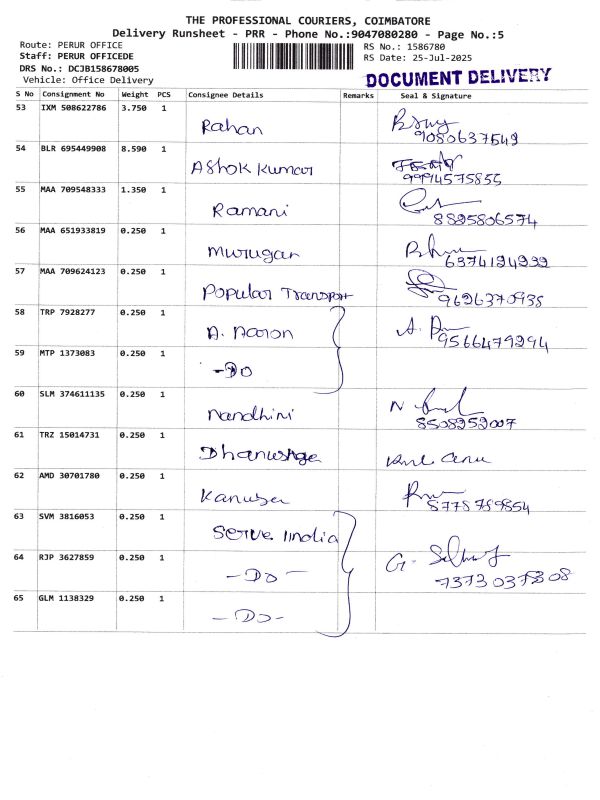 THE PROFESSIONAL COURIERS, COIMBATORE
Delivery Runsheet - PRR - Phone No.:9047080280 - Page No.:5
Route: PERUR OFFICE
Staff: PERUR OFFICEDE
DRS No.: DCJB158678005
Vehicle: Office Delivery
RS No.: 1586780
RS Date: 25-Jul-2025
DOCUMENT DELIVERY
S No Consignment No Weight PCS Consignee Details Remarks Seal & Signature
53 IXM 508622786 3.750 1
Rahan
9080637549
54 BLR 695449908 8.590 1
Ashok Kumar
9994575855
55 MAA 709548333 1.350 1
Ramani
8895806574
56 MAA 651933819 0.250 1
Murugan
6374194939
57 MAA 709624123 0.250 1
Popular Transport
9626370935
58 TRP 7928277 0.250 1
A. Aaron
9566479294
59 MTP 1373083 0.250 1
-Do
60 SLM 374611135 0.250 1
Nandhini
8508959007
61 TRZ 15014731 0.250 1
62 AMD 30701780 0.250 1
8778789854
63 SVM 3816053 0.250 1
Serve India
64 RJP 3627859 0.250 1
-Do-
7373037308
65 GLM 1138329 0.250 1
-Do-